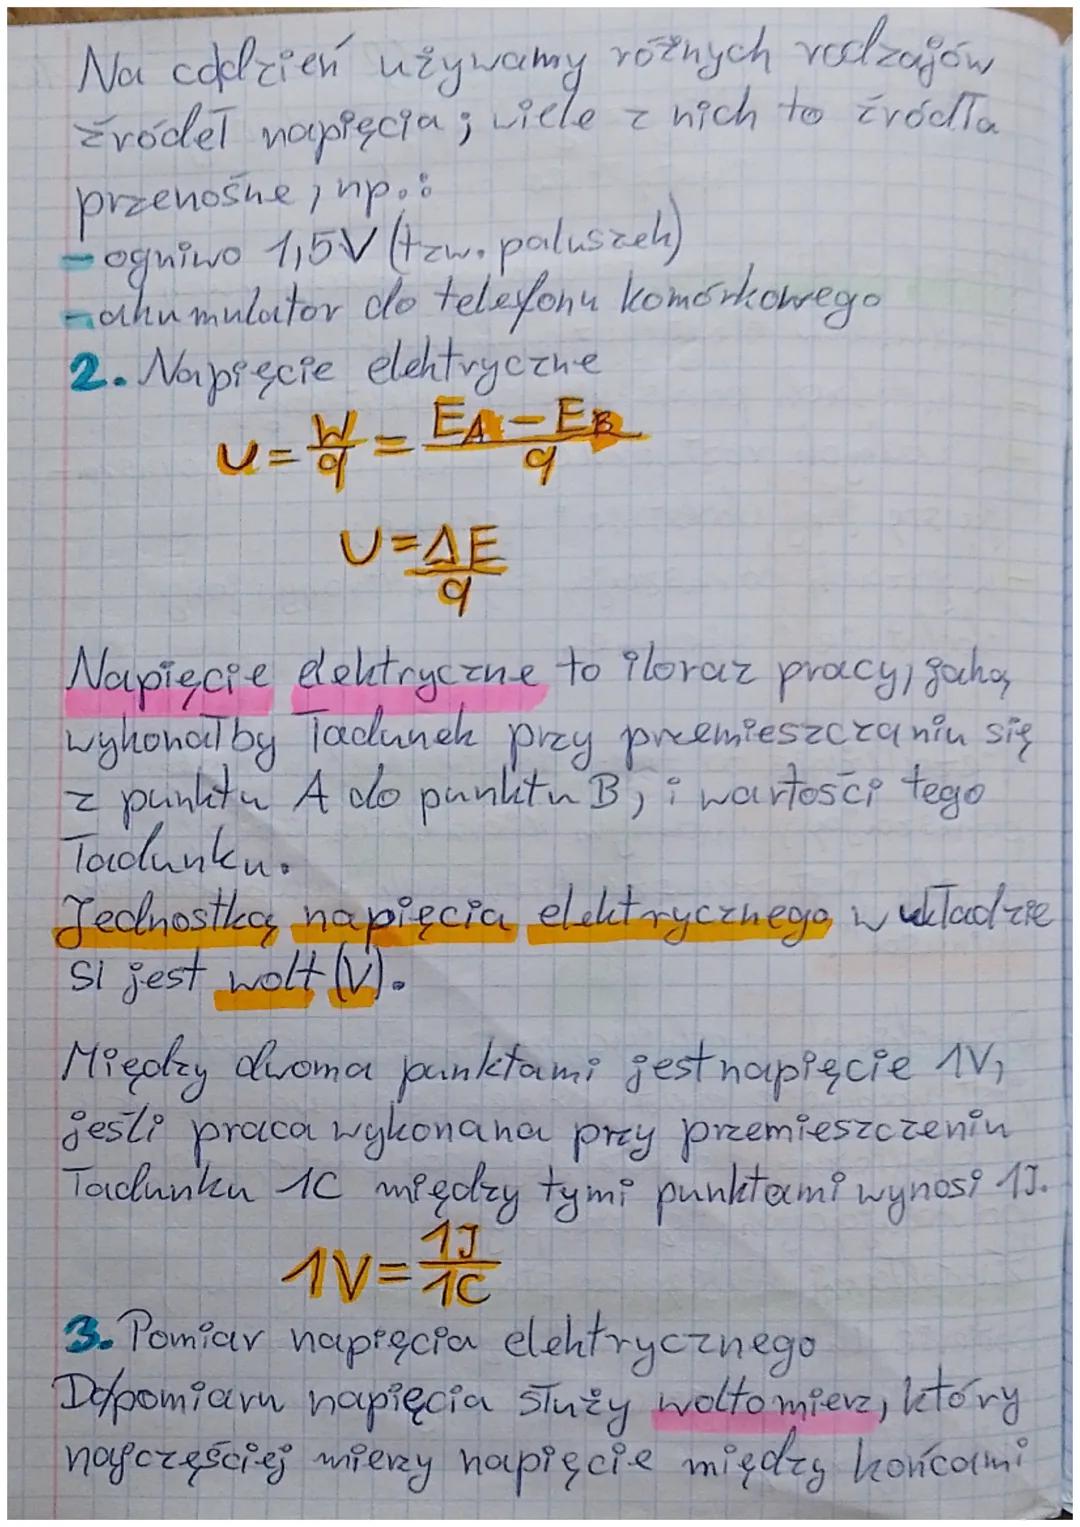 Na codzień używamy różnych rodzajów
źródeł napięcia; wiele z nich to źródła
przenośne, np.:
- ogniwo 1,5V (tzw. paluszek)
- akumulator do telefonu komórkowego
2. Napięcie elektryczne
U = W/q = (EA - EB)/q
U = ΔE/q
Napięcie elektryczne to iloraz pracy, jaką
wykonałby ładunek przy przemieszczaniu się
z punktu A do punktu B, i wartości tego
ładunku.
Jednostką napięcia elektrycznego w układzie
SI jest wolt (V).
Między dwoma punktami jest napięcie 1V,
jeśli praca wykonana przy przemieszczeniu
ładunku 1C między tymi punktami wynosi 1J.
1V = 1J/1C
3. Pomiar napięcia elektrycznego
Do pomiaru napięcia służy woltomierz, który
najczęściej mierzy napięcie między końcami